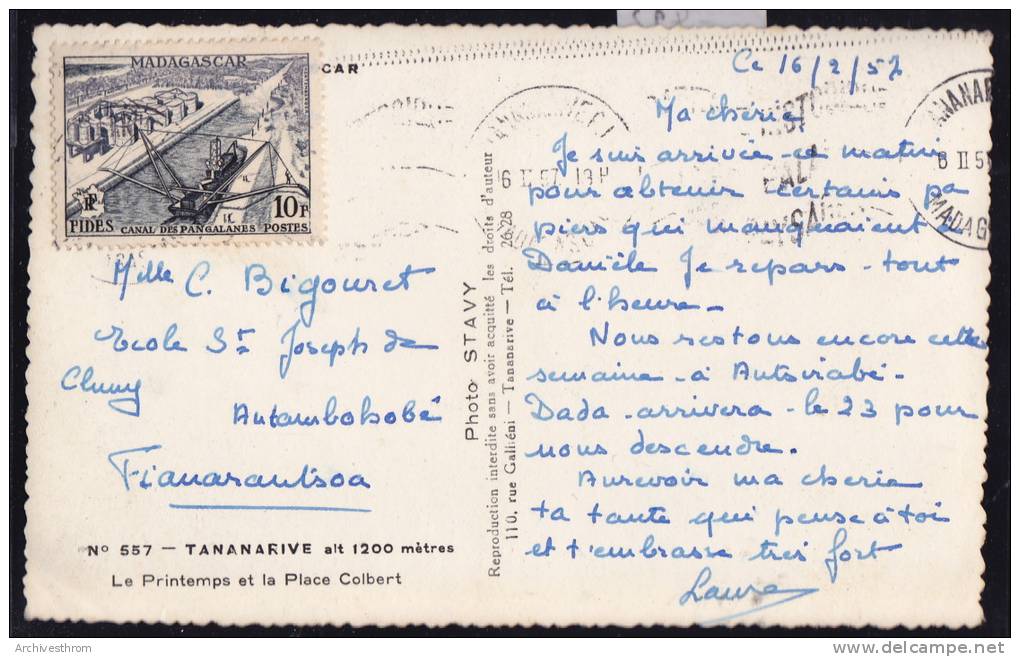 MADAGASCAR
RF
10F
FIDES CANAL DES PANGALANES POSTES
CAR
6 II 57 19H
MADAG
Mlle C. Bigouret
Ecole St Joseph de
Cluny
Antambohobé
Fianarantsoa
N° 557 — TANANARIVE alt 1200 mètres
Le Printemps et la Place Colbert
Photo STAVY
Reproduction interdite sans avoir acquitté les droits d'auteur
110, rue Galliéni — Tananarive — Tél. 26-28
Ce 16/2/57
Ma chérie
Je suis arrivée ce matin
pour obtenir certains pa
piers qui manquaient à
Danièle Je repars tout
à l'heure.
Nous restons encore cette
semaine à Antsirabé.
Dada arrivera le 23 pour
nous descendre.
Aurevoir ma cherie
ta tante qui pense à toi
et t'embrasse très fort
Laure
Archivesthrom
delcampe.net